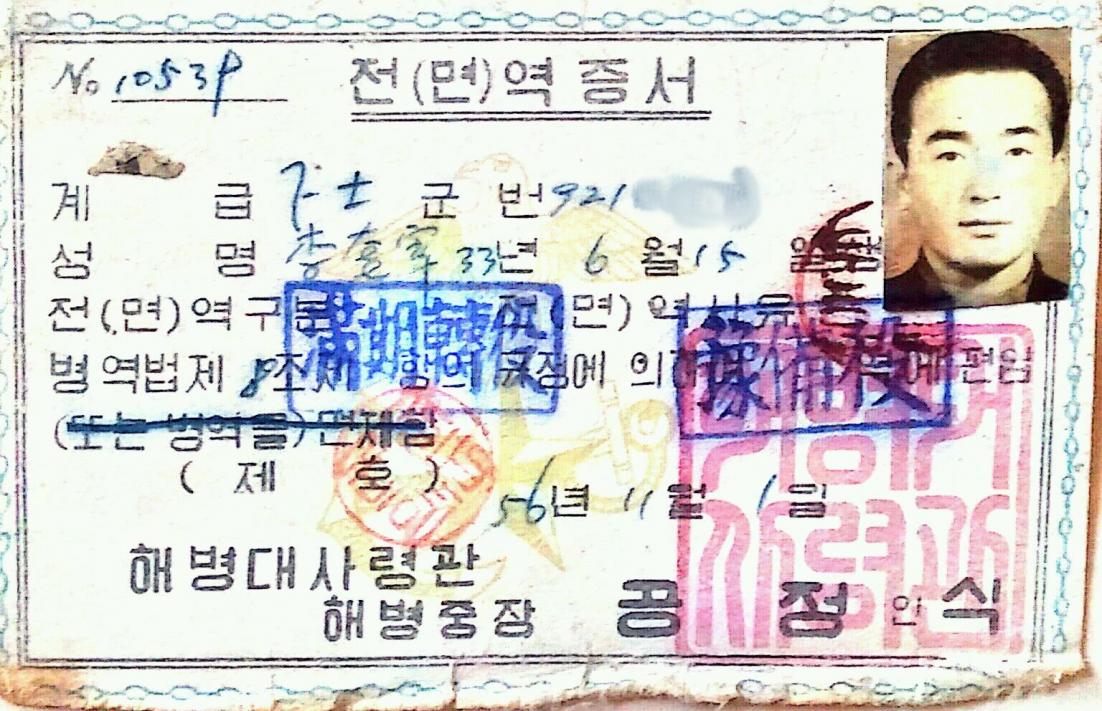 No 10539 전(면)역증서
계 급 下士 군 번 921
성 명 李奎軍 33년 6월 15일생
전(면)역구분 滿期轉役 전(면)역사유
병역법제 8조제 항의 규정에 의하여 豫備役에 편입
(또는 병역을)면제함
(제 호)
56년 11월 1일
해병대사령관
해병중장 공정식 인